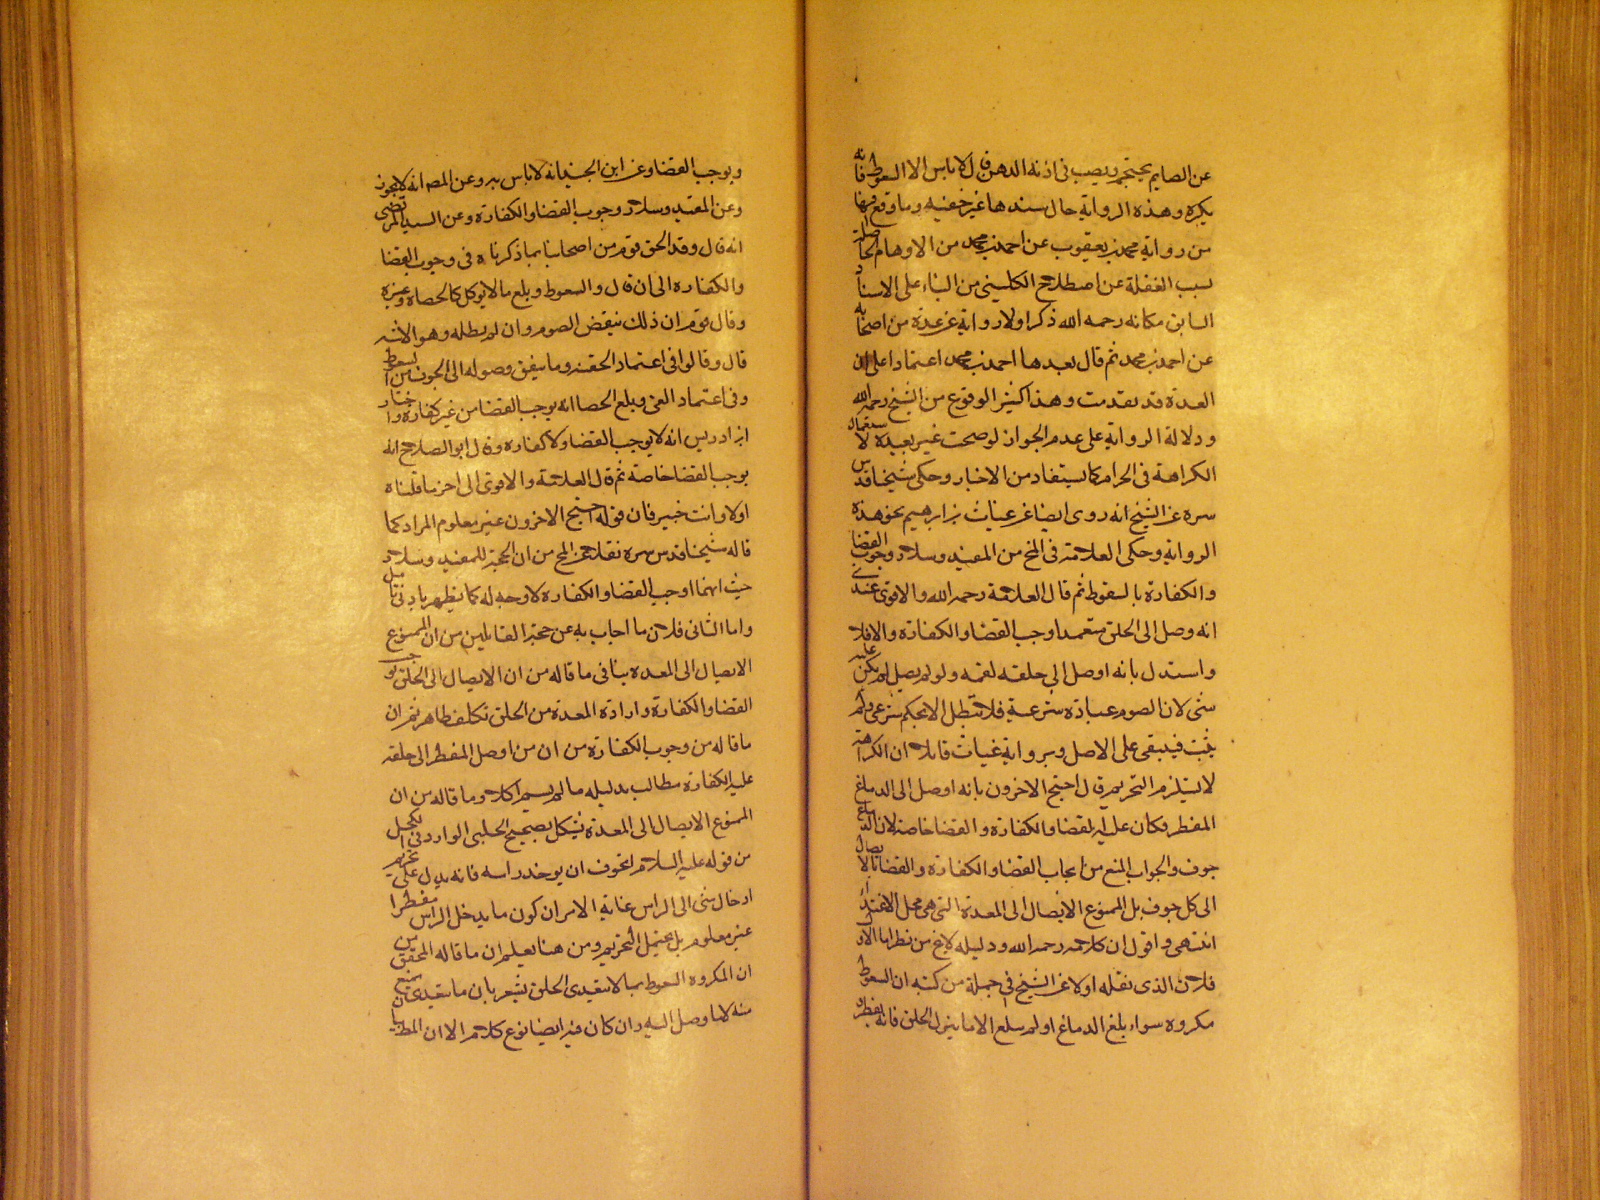 عن الصايم يحتجم ويصب فى اذنه الدهن قال لا باس الا السعوط فانه
يكره وهذه الرواية حال سندها غير خفيه وما وقع فيها
من رواية محمد بن يعقوب عن احمد بن محمد من الاوهام الحاصلة
بسبب الغفلة عن اصطلاح الكلينى من البناء على الاسناد
السابق مكانه رحمه الله ذكر اولا رواية عن عدة من اصحابه
عن احمد بن محمد ثم قال بعدها احمد بن محمد اعتمادا على ان
العدة قد تقدمت وهذا كثير الوقوع من الشيخ رحمه الله
ودلالة الرواية على عدم الجواز لو صحت غير بعيدة لاستعمال
الكراهة فى الحرام كما يستفاد من الاخبار وحكى شيخنا قدس
سره عن الشيخ انه روى ايضا عن غياث بن ابرهيم نحو هذه
الرواية وحكى العلامة فى المخ من المفيد وسلار وجوب القضا
والكفارة بالسعوط ثم قال العلامة رحمه الله والاقوى عندى
انه وصل الى الحلق متعمدا وجب القضا والكفارة والا فلا
واستدل بانه اوصل الى حلقه لقمه ولو لم يصل لم يكن عليه
شى لان الصوم عبادة شرعية فلا تبطل الا بحكم شرعى ولم
يثبت فيبقى على الاصل وبرواية غياث قايلا ان الكراهة
لا يستلزم التحريم قال احتج الاخرون بانه اوصل الى الدماغ
المفطر فكان عليه القضا والكفارة و القضا خاصة لان الدماغ
جوف والجواب المنع من ايجاب القضا والكفارة والقضا بالايصال
الى كل جوف بل الممنوع الايصال الى المعدة التى هى محل الاغتذاء
انتهى واقول ان كلامه رحمه الله ودليله لا يخ من نظر اما الاول
فلان الذى نقله اولا عن الشيخ فى جملة من كتبه ان السعوط
مكروه سواء بلغ الدماغ او لم يبلغ الا ما ينزل الحلق فانه يفطر
ويوجب القضا وعن ابن الجنيد انه لا باس به وعن المص انه لا يجوز
وعن المفيد وسلار وجوب القضا والكفارة وعن السيد المرتضى
انه قال وقد الحق قوم من اصحابنا بما ذكرناه فى وجوب القضا
والكفارة الى ان قال والسعوط وبلع ما لا يوكل كالحصاه وغيره
وقال قوم ان ذلك ينقض الصوم وان لم يبطله وهو الاشبه
قال وقالوا فى اعتماد الحقنة وما يتيقن وصوله الى الجوف من السعوط
وفى اعتماد القى وبلع الحصا انه يوجب القضا من غير كفارة واختار
ابن ادريس انه لا يوجب القضا ولا كفارة وقال ابو الصلاح انه
يوجب القضا خاصة ثم قال العلامة والاقوى الى اخر ما نقلناه
اولا وانت خبير فان قوله احتج الاخرون غير معلوم المراد كما
قاله شيخنا قدس سره نقلا عن المخ من ان الحجة للمفيد وسلار
حيث انهما اوجبا القضا والكفارة لا وجه له كما يظهر بادنى تامل
واما الثانى فلان ما اجاب به عن حجة القايلين من ان الممنوع
الايصال الى المعدة ينافى ما قاله من ان الايصال الى الحلق يوجب
القضا والكفارة وارادة المعدة من الحلق تكلف ظاهر ثم ان
ما قاله من وجوب الكفارة من ان من اوصل المفطر الى حلقه
عليه الكفارة مطالب بدليله ما لم يسم اكلا وما قاله من ان
الممنوع الايصال الى المعدة يشكل بصحيح الحلبى الوارد فى الكحل
من قوله عليه السلام اتخوف ان يوخذ راسه فانه يدل على تحريم
ادخال شى الى الراس غاية الامر ان كون ما يدخل الراس مفطرا
غير معلوم بل يحتمل التحريم ومن هنا يعلم ان ما قاله المحقق من
ان المكروه السعوط بما لا يتعدى الحلق يشعر بان ما يتعدى منع
منه لا ما وصل اليه وان كان فيه ايضا نوع كلام الا ان المطايبا